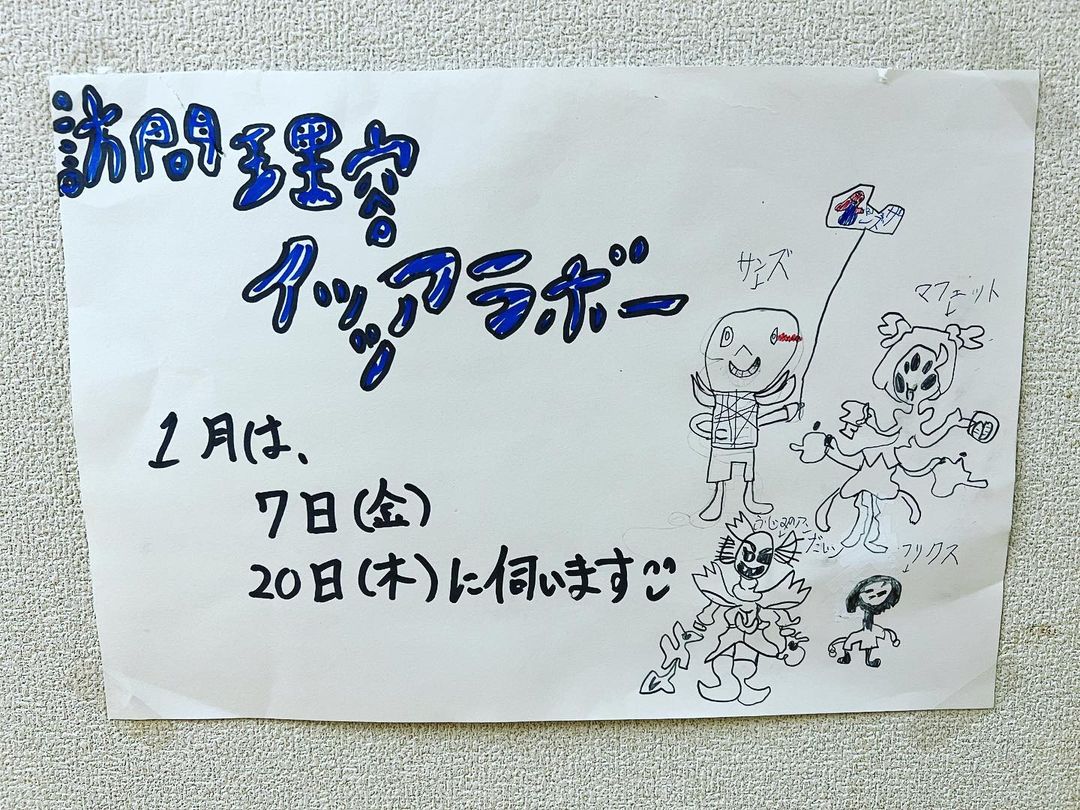 訪問理容
イッツアラボー
1月は、
7日(金)
20日(木)に伺います
サンズ
マフェット
フリクス